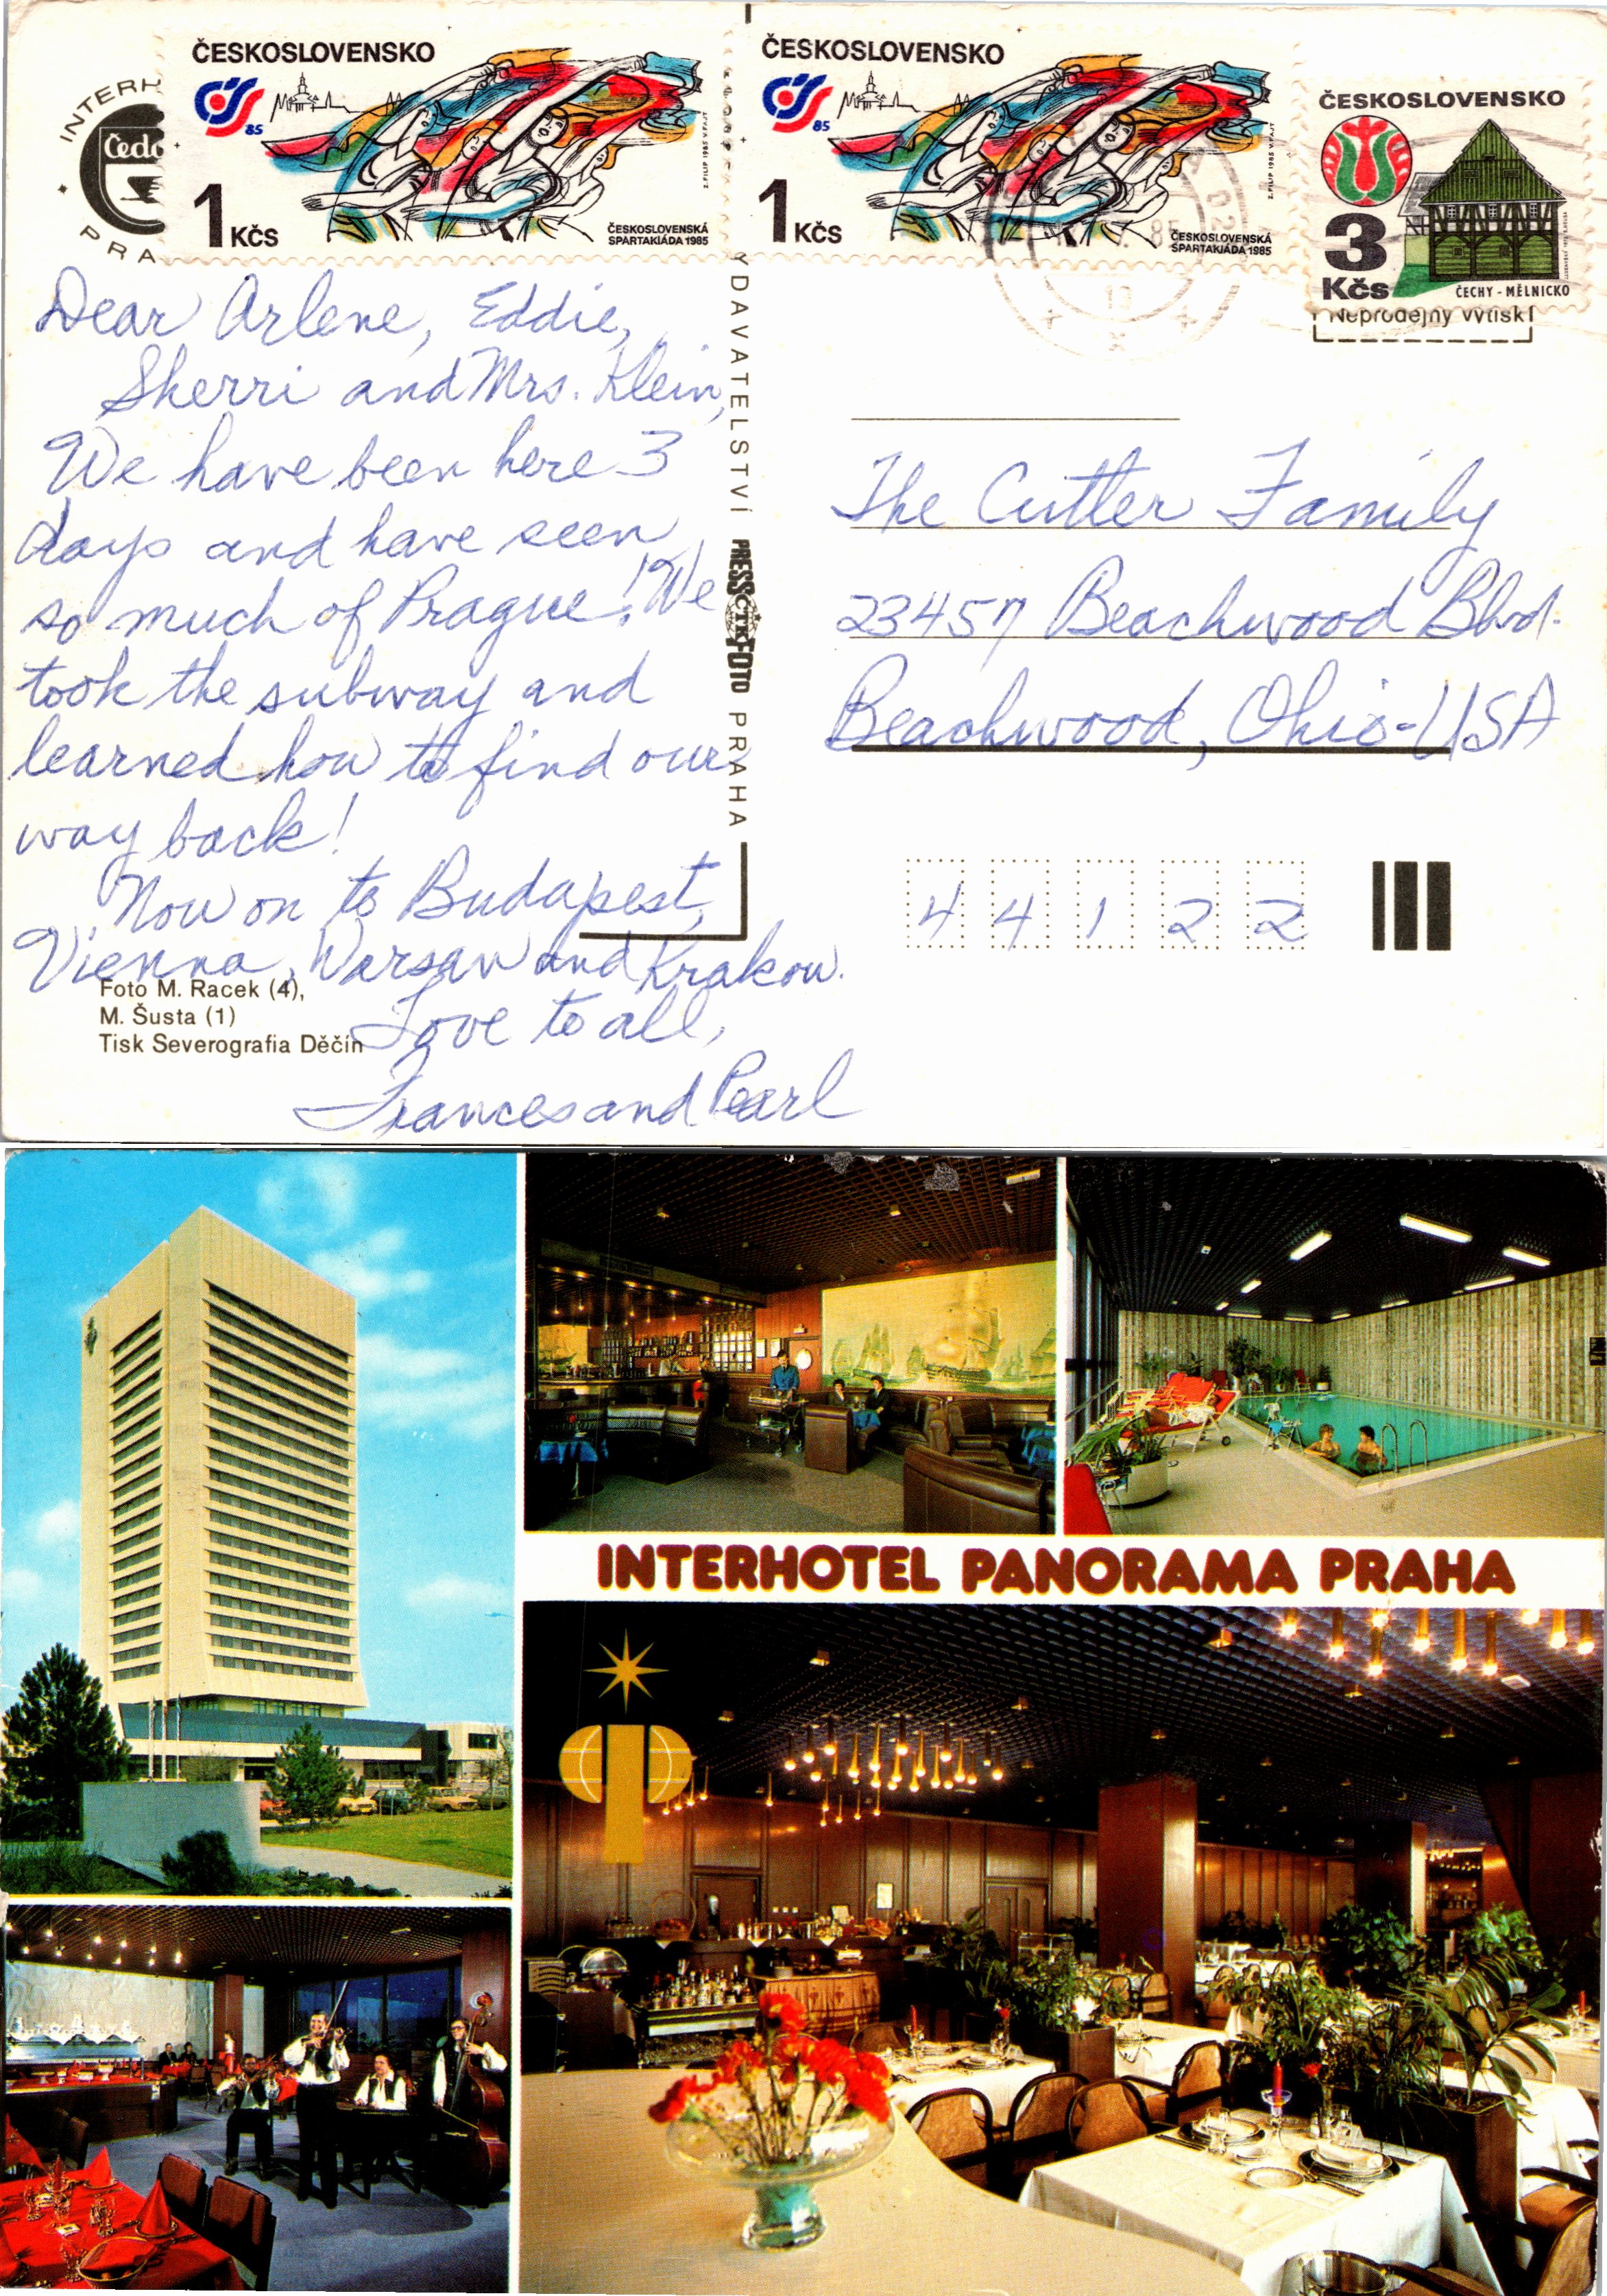 INTERH
Čedo
PRA
ČESKOSLOVENSKO
ČS 85
1 Kčs
ČESKOSLOVENSKÁ
SPARTAKIÁDA 1985
ČESKOSLOVENSKO
ČS 85
1 Kčs
ČESKOSLOVENSKÁ
SPARTAKIÁDA 1985
ČESKOSLOVENSKO
3
Kčs
ČECHY - MĚLNICKO
Neprodejný výtisk
Dear Arlene, Eddie,
Sherri and Mrs. Klein,
We have been here 3
days and have seen
so much of Prague! We
took the subway and
learned how to find our
way back!
Now on to Budapest,
Vienna, Warsaw and Krakow.
Love to all,
Frances and Pearl
Foto M. Racek (4),
M. Šusta (1)
Tisk Severografia Děčín
YDAVATELSTVÍ PRESSFOTO PRAHA
ČTK
The Cutler Family
23457 Beachwood Blvd.
Beachwood, Ohio-USA
4 4 1 2 2
INTERHOTEL PANORAMA PRAHA